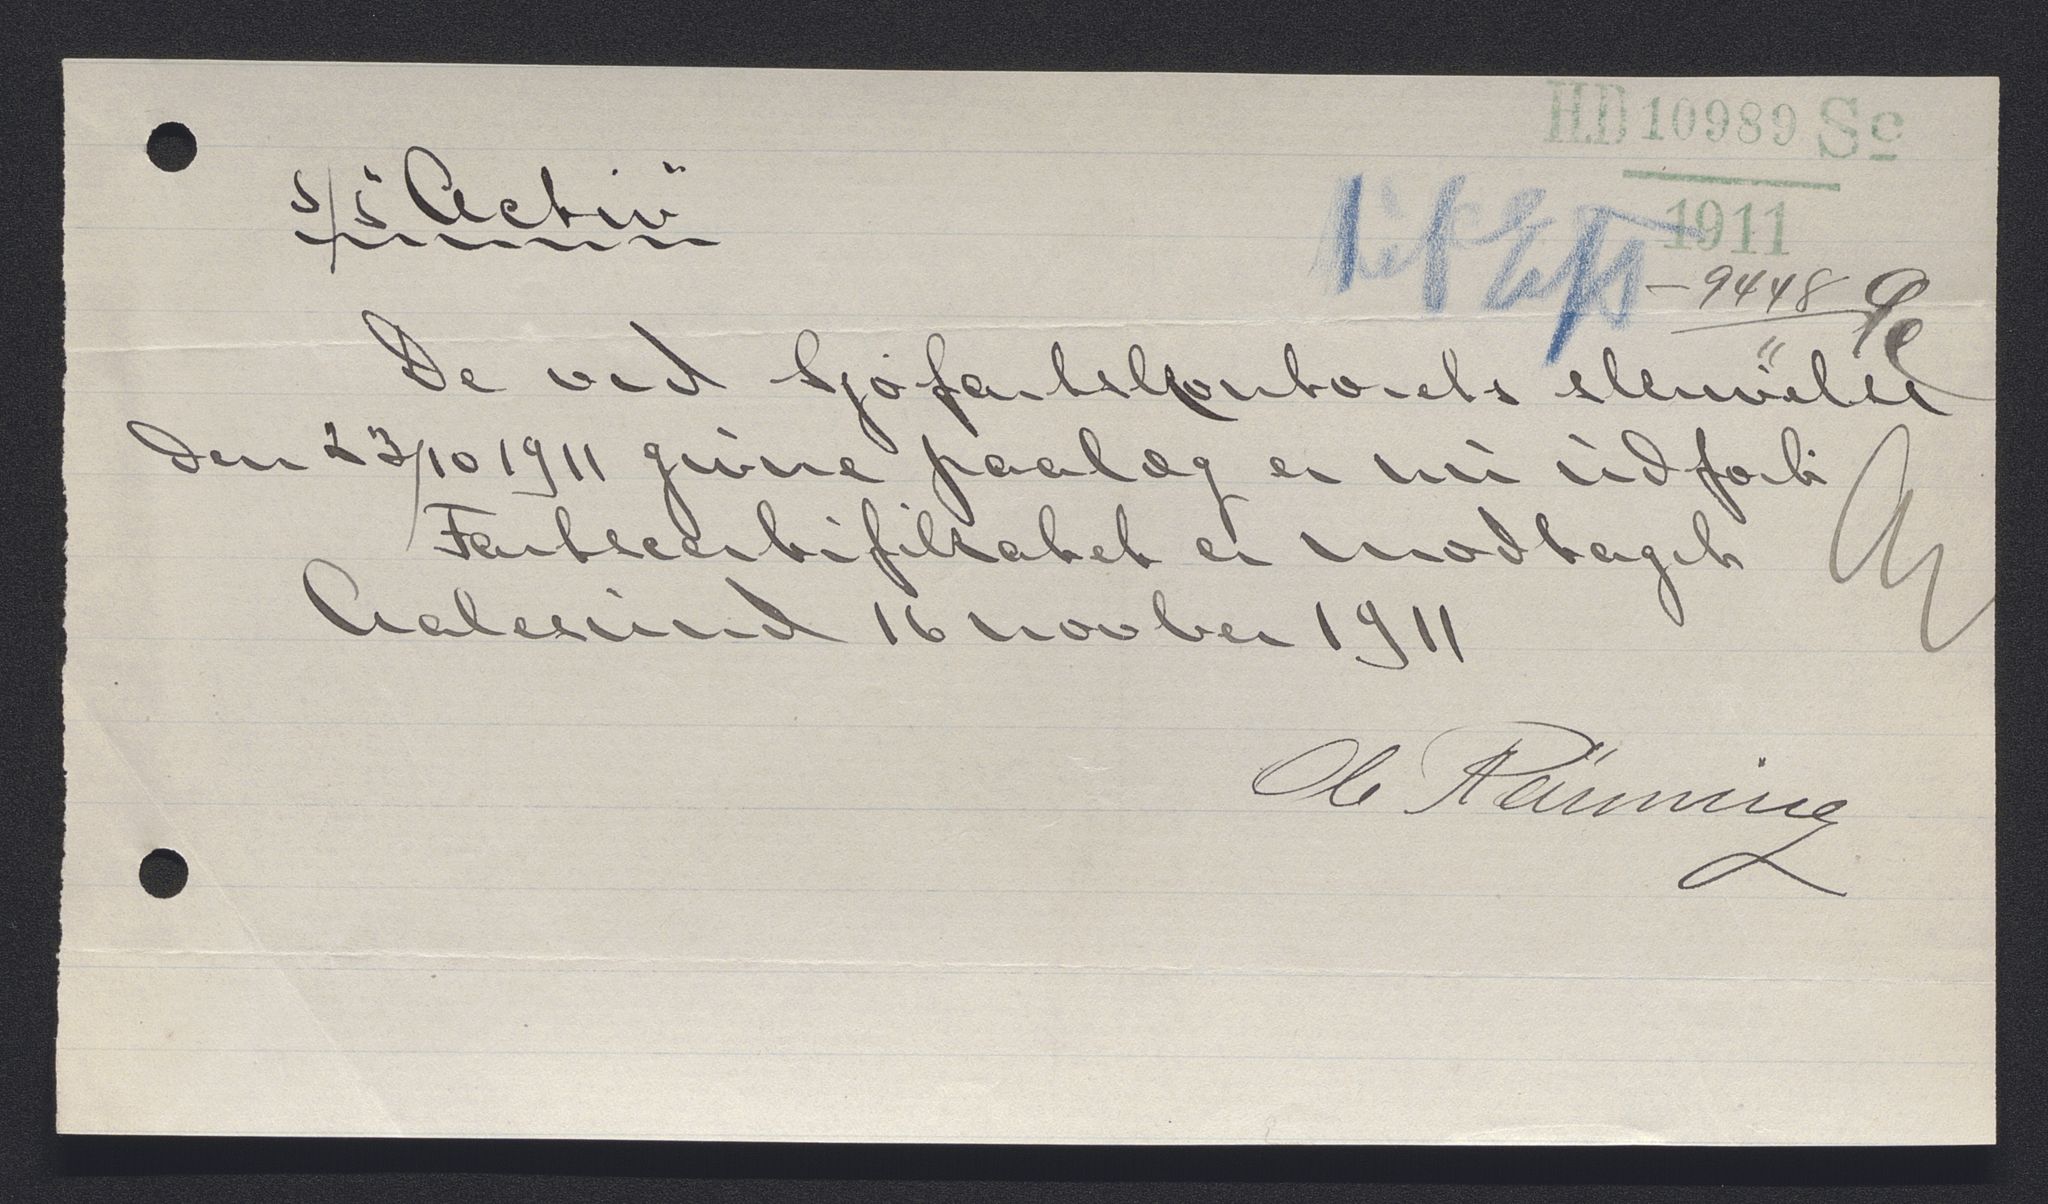 HD 10989 Sc
1911
s/s "Activ"
- 9448
De ved Sjøfartskontorets skrivelse
den 23/10 1911 givne paalæg er nu udført
Fartscertifikatet er modtaget
Aalesund 16 novber 1911
Ole Rønning